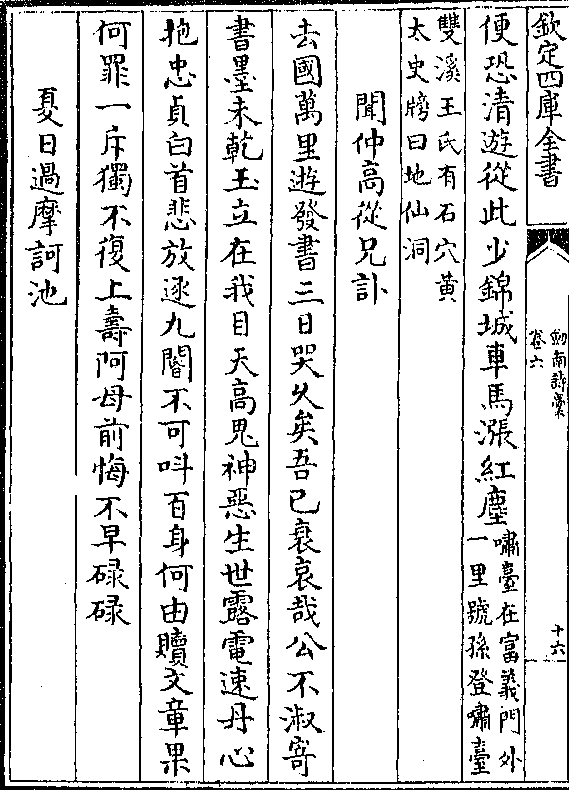 欽定四庫全書
劒南詩藁
卷六
十六
便恐清遊從此少錦城車馬漲紅塵
嘯臺在富義門外
一里號孫登嘯臺
雙溪王氏有石穴黄
太史牓曰地仙洞
聞仲高從兄訃
去國萬里遊發書三日哭久矣吾已衰哀哉公不淑寄
書墨未乾玉立在我目天高鬼神惡生世露電速丹心
抱忠貞白首悲放逐九閽不可呌百身何由贖文章果
何罪一斥獨不復上壽阿母前悔不早碌碌
夏日過摩訶池